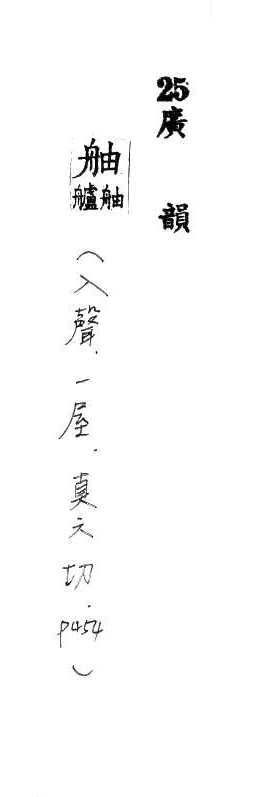 25廣韻
舳
艫舳
(入聲.一屋.直六切.p454)